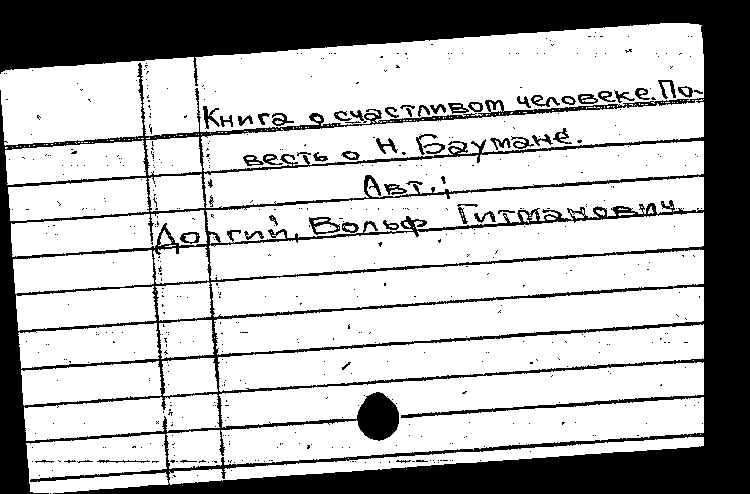 Книга о счастливом человеке. По-
весть о Н. Баумане.
Авт.:
Долгий, Вольф Гитманович.